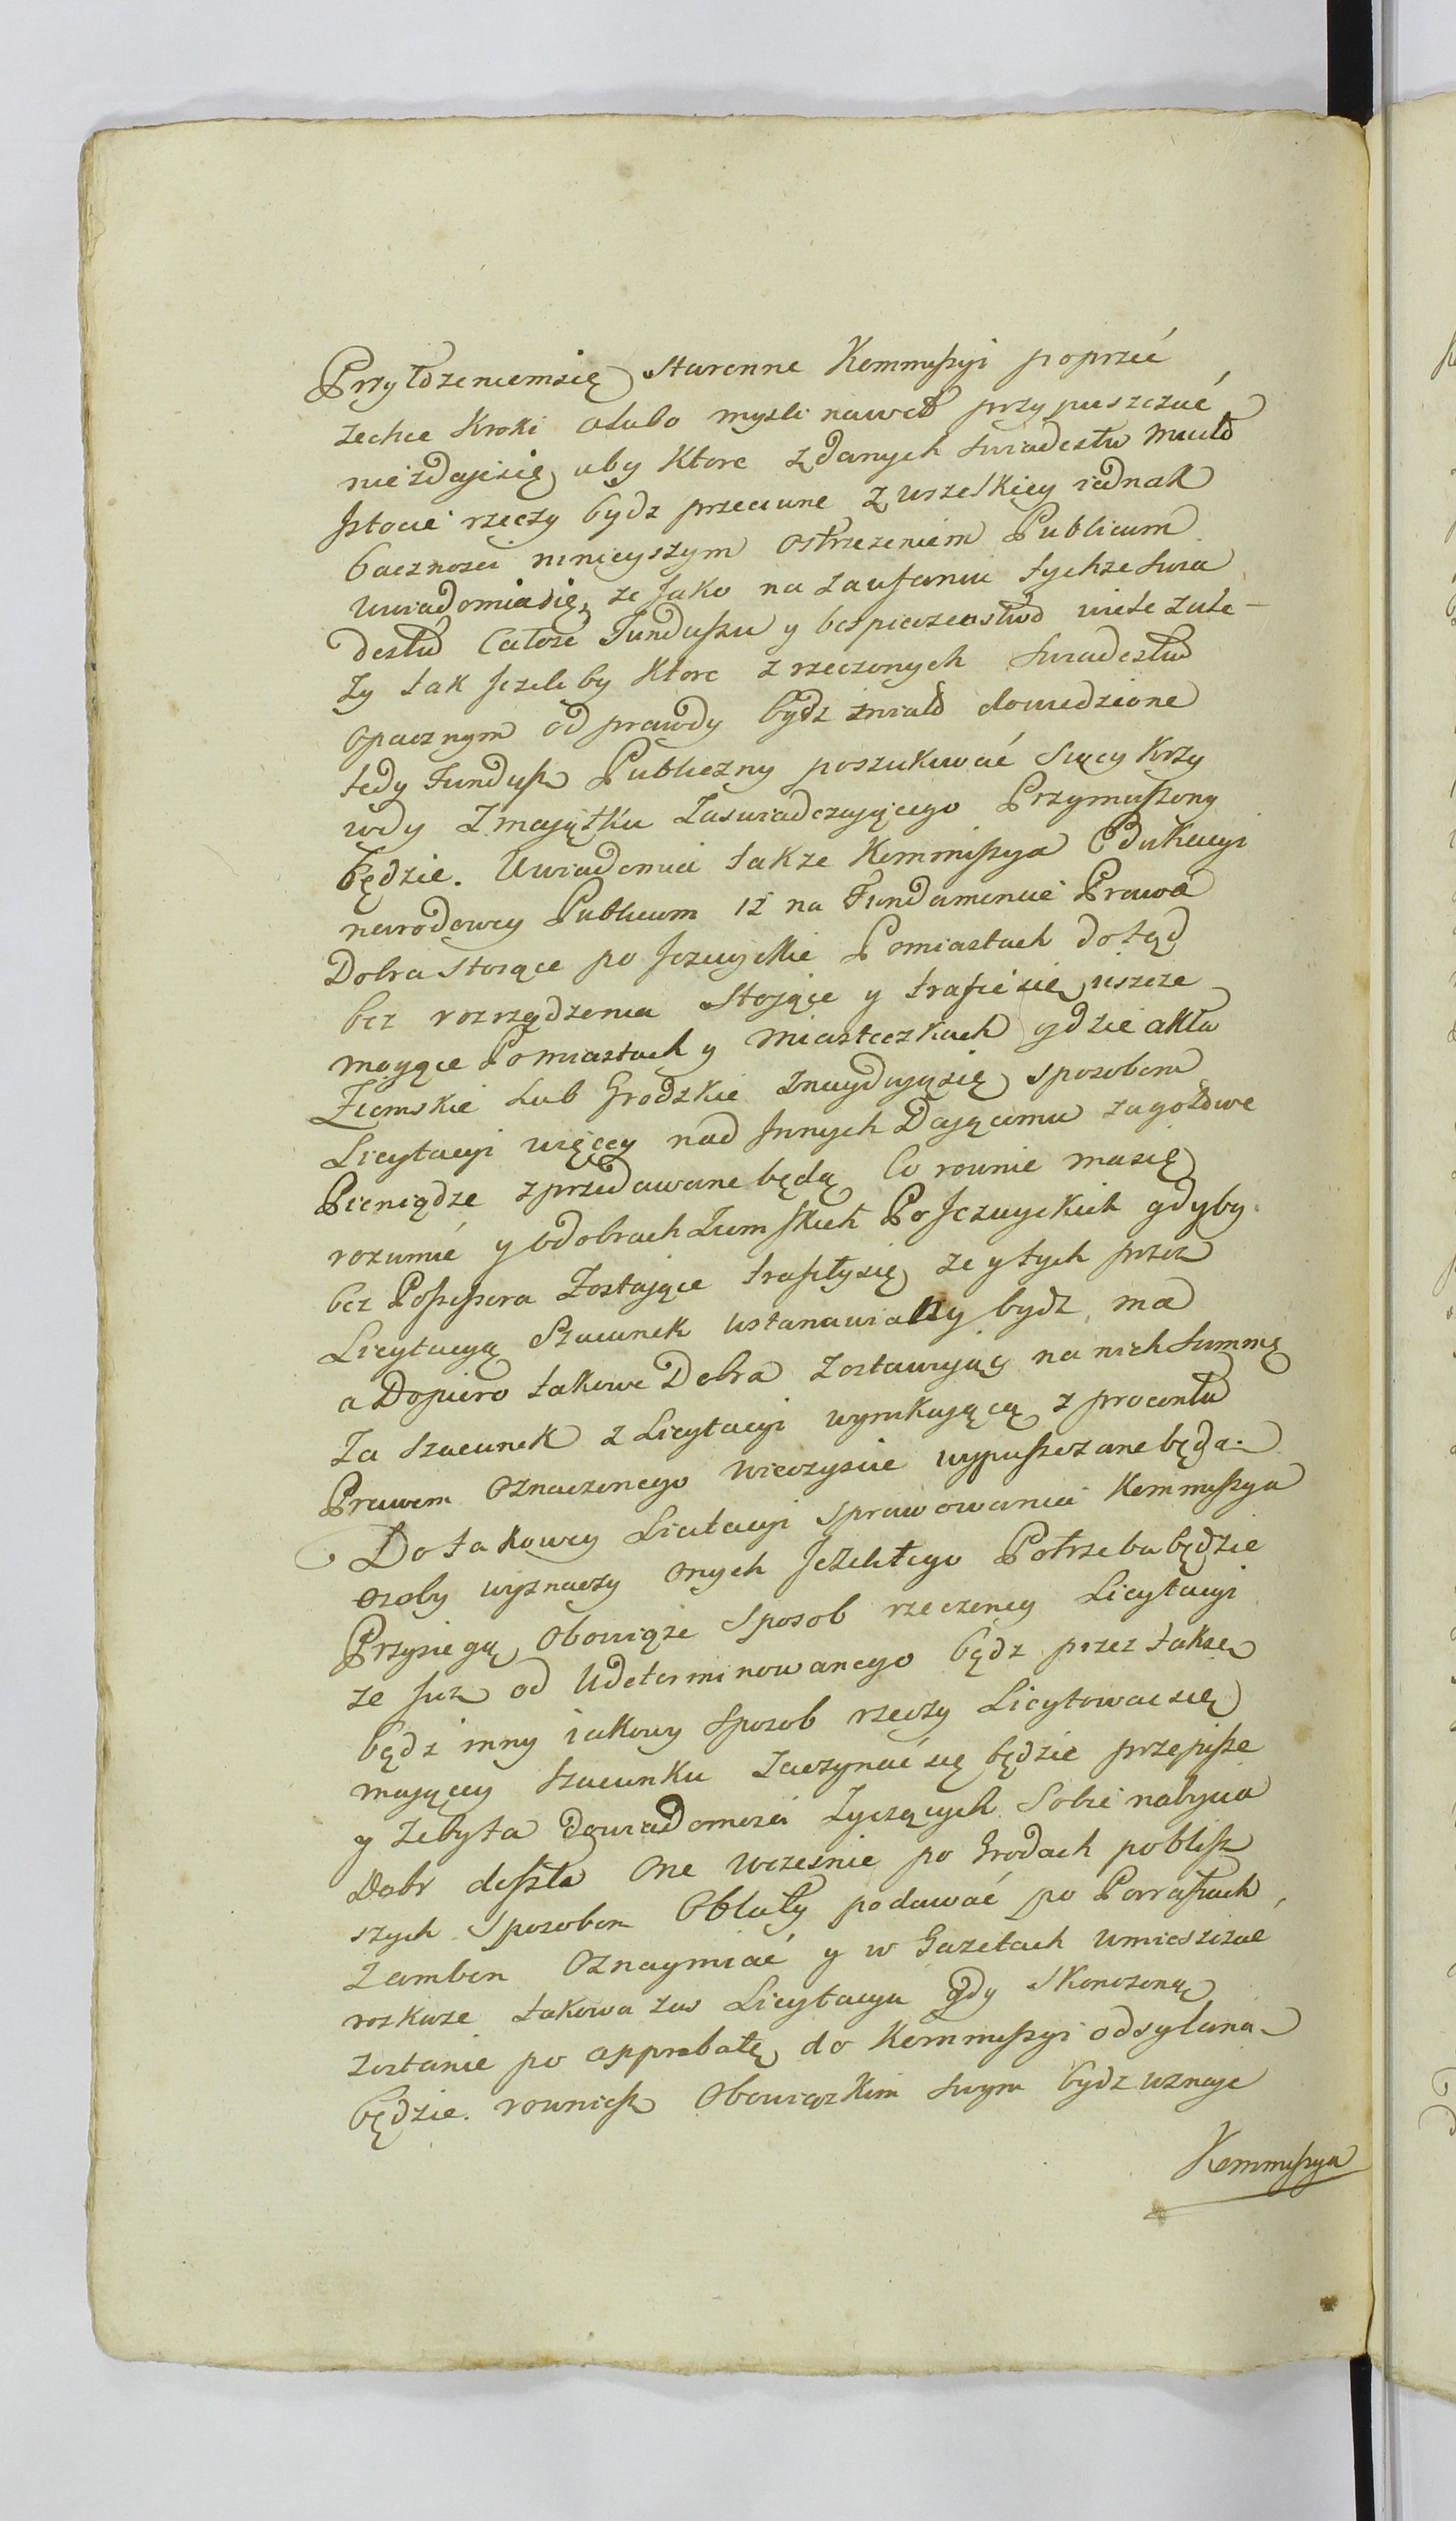 Przyłdzeniemsię starenne Kommissyi poprzeć
zechce Kroki alubo myśli nawet przypuszczać
niezdajesię aby Ktore zdanych swiadectw miało
Istocie rzeczy bydz przeciwne z wszelkiey iednak
baczności ninieyszym ostrzezeniem Publicum
uwiadomiasię, ze Jako na zaufaniu tychze swia
dectw Całość Funduszu y bespieczenstwo wiele zale-
zy tak Jezeliby Ktore z rzeczonych swiadectw
opacznym od prawdy bydz miało dowiedzione
tedy Fundusz Publiczny poszukiwać swęy Krzy
wdy Zmajątku Zaswiadczającego Przymuszony
będzie. Uwiadomia takze Kommissya Edukacyi
narodowey Publicum iż na Fundamencie Prawa
Dobra stoiące po Jezuyckie Pomiastach dotąd
bez rozrządzenia stojące y trafić się ieszcze
mogące Pomiastach y Miasteczkach gdzie akta
Ziemskie Lub Grodzkie znayduiąsię sposobem
Licytacyi więcey nad Innych Dającemu zagotowe
Pieniądze zprzedawane będą Co rownie masię
rozumić y odobrach Ziemskich PoJezuyckich gdyby
bez Possessora Zostające trafiłysię ze y tych przez
Licytacyą Szacunek ustanawiany bydz ma
a Dopiero takowe Dobra zostawując na nich summę
Za szacunek z Licytacyi wynikającą z procentu
Prawem Oznaczonego wieczyscie wypuszczane będą.
Do takowey Licitacyi sprawowania Kommissya
osoby wyznaczy onych Jezelitego Potrzeba będzie
Przysięgą Obowiąze sposob rzeczoney Licytacyi
ze Juz od Udeterminowanego bądz przez taksę
bądz inny iakowy sposob rzeczy Licytowac się
mającey szacunku Zaczynać się będzie przepisze
y Zebyta dowiadomosci Zyczących sobie nabycia
Dobr doszła One wczesnie po Grodach poblisz
szych sposobem Oblaty podawać po Parrafiach
Zambon Oznaymiać y w Gazetach umieszczać
rozkaze takowa zas Licytacya gdy skonczoną
zostanie po approbatę do Kommissyi odsyłana
będzie. rownież Obowiązkim swym bydz uznaje
Kommissya